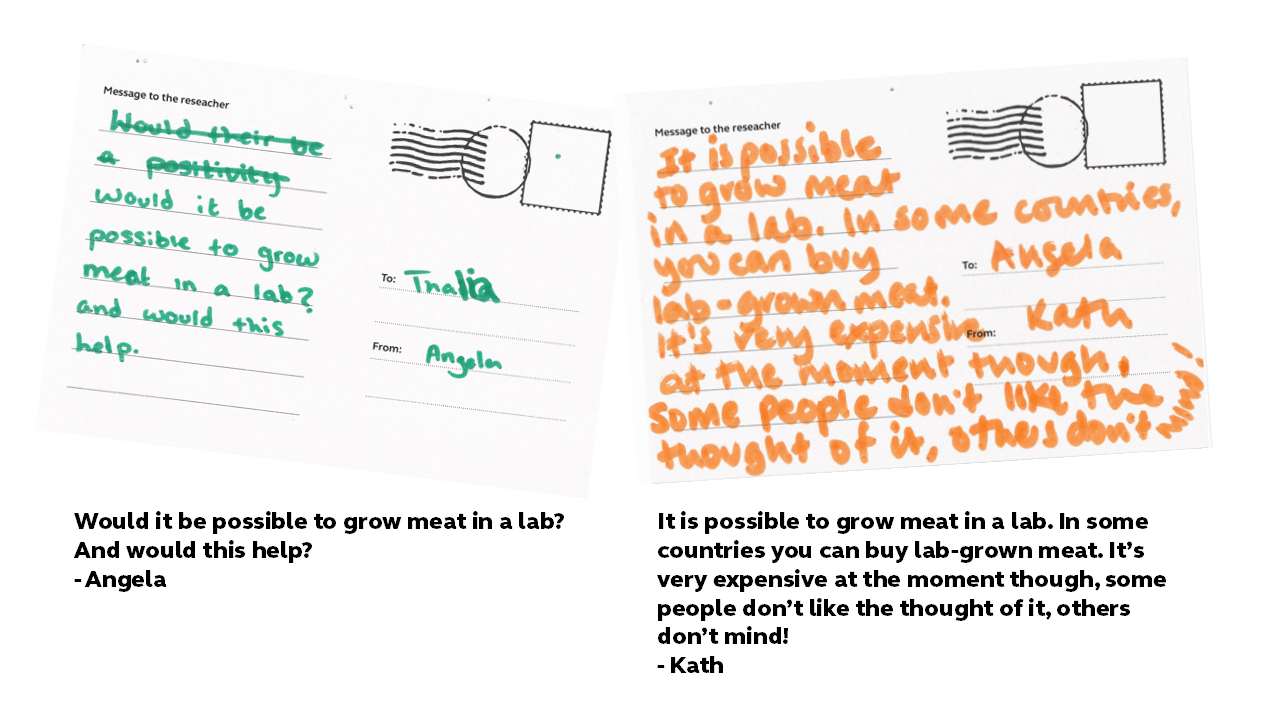 Message to the reseacher
Would their be
a positivity
would it be
possible to grow
meat in a lab?
and would this
help.
To: Thalia
From: Angela
Message to the reseacher
It is possible
to grow meat
in a lab. In some countries,
you can buy
lab-grown meat.
It's very expensive
at the moment though,
some people don't like the
thought of it, others don't mind!
To: Angela
From: Kath
Would it be possible to grow meat in a lab?
And would this help?
- Angela
It is possible to grow meat in a lab. In some
countries you can buy lab-grown meat. It’s
very expensive at the moment though, some
people don’t like the thought of it, others
don’t mind!
- Kath